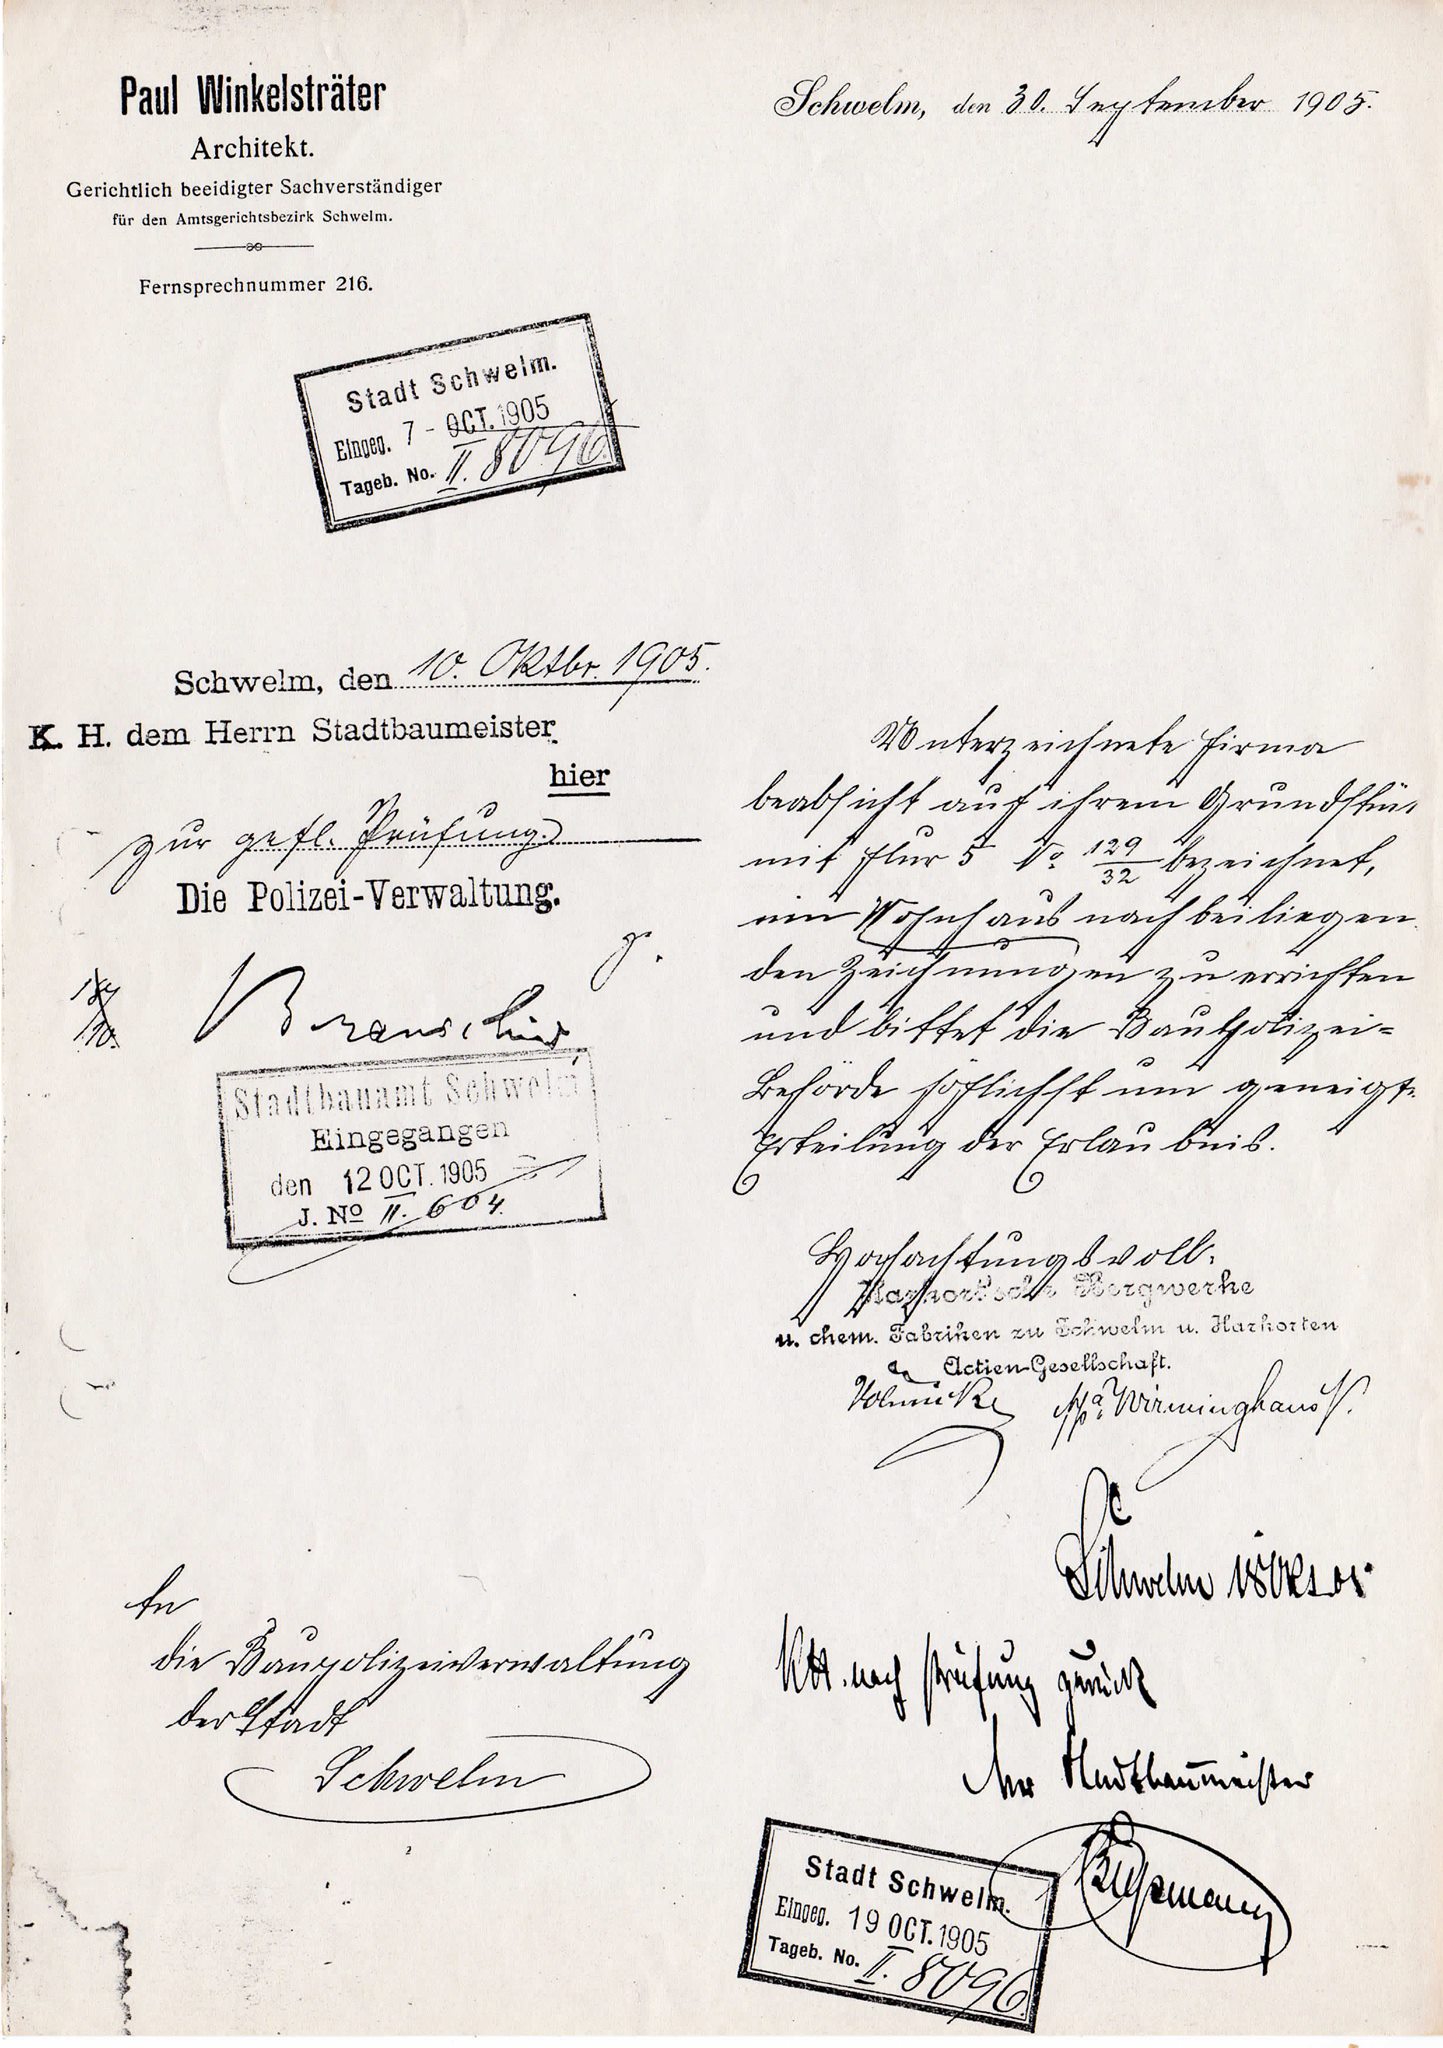 Paul Winkelsträter
Architekt.
Gerichtlich beeidigter Sachverständiger
für den Amtsgerichtsbezirk Schwelm.
Fernsprechnummer 216.
Schwelm, den 30. September 1905.
Stadt Schwelm.
Eingeg. 7 - OCT. 1905
Tageb. No. II. 8096
Schwelm, den 10. Oktbr. 1905.
K. H. dem Herrn Stadtbaumeister
hier
zur gefl. Prüfung.
Die Polizei-Verwaltung.
Stadtbauamt Schwelm
Eingegangen
den 12 OCT. 1905
J. No II. 604.
Unterzeichnete Firma
beabsicht auf ihrem Grundstü,
mit Flur 5 No 129/32 bezeichnet,
ein Wohnhaus nach beiliegen
den Zeichnungen zu errichten
und bittet die Baupolizei=
Behörde höflichst um geneigte
Erteilung der Erlaubnis.
Hochachtungsvoll.
Harkort'sche Bergwerke
u. chem. Fabriken zu Schwelm u. Harkorten
Actien-Gesellschaft.
ppa. Wirminghaus
Schwelm 18 Okt 05
KH. nach Prüfung zurück
Der Stadtbaumeister
An
die Baupolizeiverwaltung
der Stadt
Schwelm
Stadt Schwelm.
Eingeg. 19 OCT. 1905
Tageb. No. II. 8096